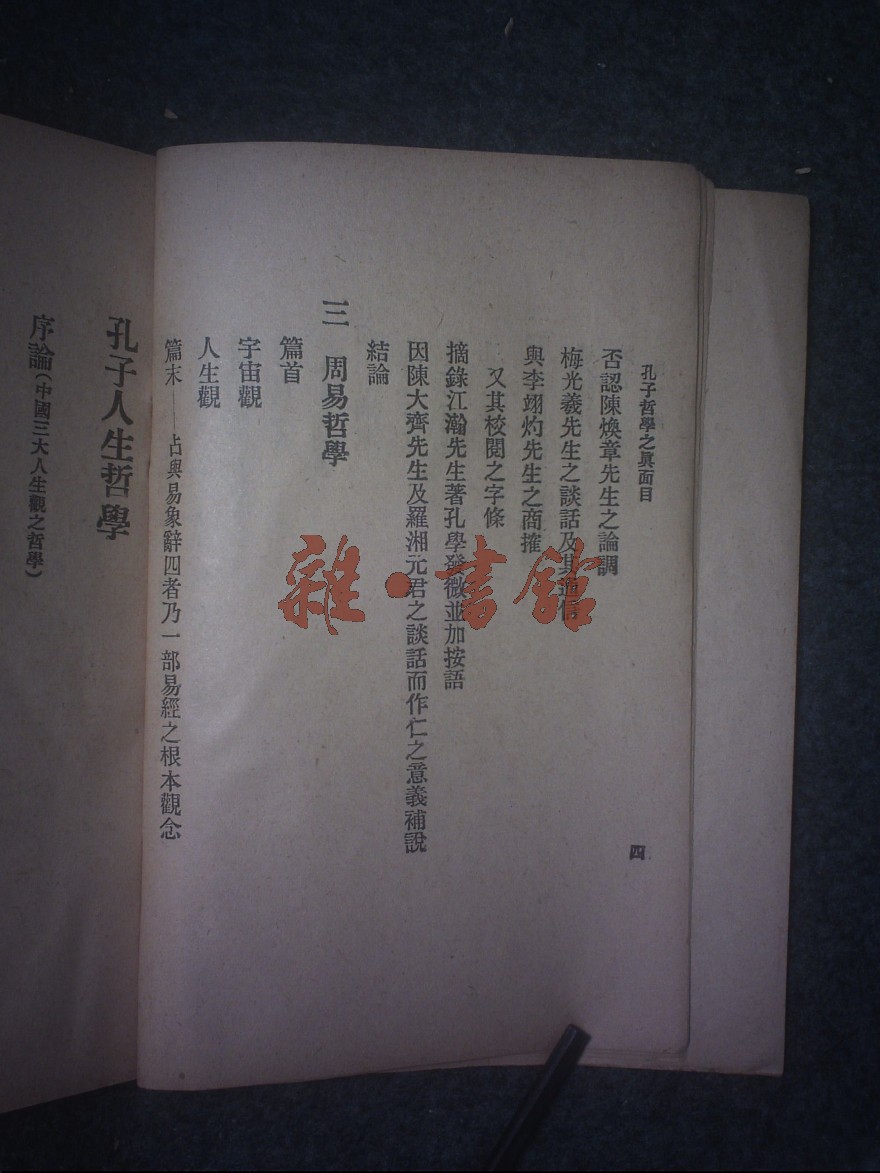 孔子哲學之眞面目
四
否認陳煥章先生之論調
梅光羲先生之談話及其通信
與李翊灼先生之商搉
又其校閱之字條
摘錄江瀚先生著孔學發微並加按語
因陳大齊先生及羅湘元君之談話而作仁之意義補說
結論
三 周易哲學
篇首
宇宙觀
人生觀
篇末——占與易象辭四者乃一部易經之根本觀念
孔子人生哲學
序論(中國三大人生觀之哲學)
雜·書館